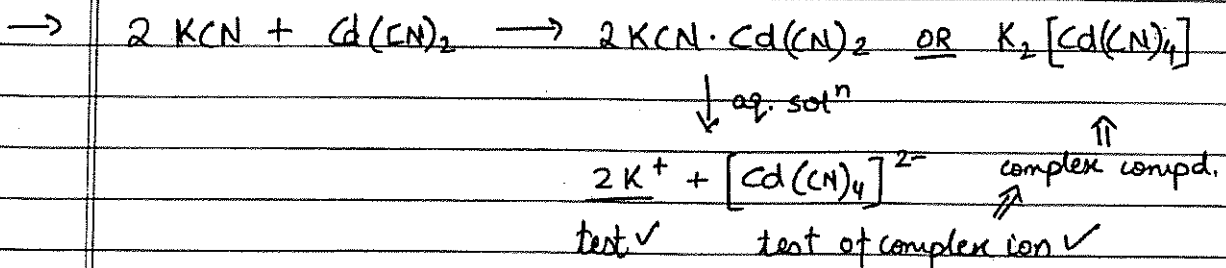 → 2 KCN + Cd(CN)₂ ⟶ 2KCN·Cd(CN)₂ OR K₂[Cd(CN)₄]
↓ aq. solⁿ
⇑
2K⁺ + [Cd(CN)₄]²⁻ complex compd.
⇗
test ✓ test of complex ion ✓